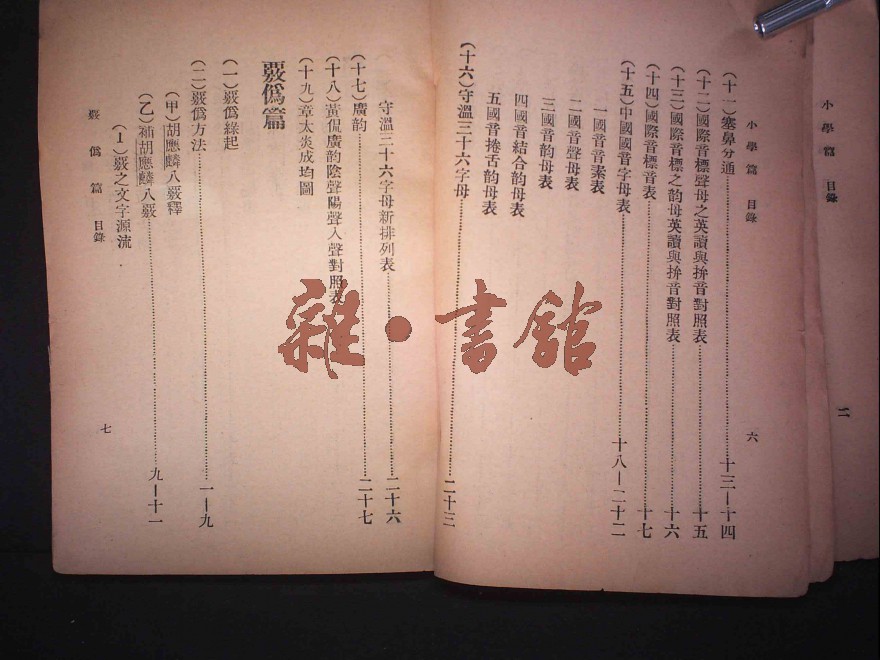 小學篇 目錄
二
小學篇 目錄
六
(十一)塞鼻分通……十三—十四
(十二)國際音標聲母之英讀與拚音對照表……十五
(十三)國際音標之韵母英讀與拚音對照表……十六
(十四)國際音標音表……十七
(十五)中國國音字母表……十八—二十二
一國音音素表
二國音聲母表
三國音韵母表
四國音結合韵母表
五國音捲舌韵母表
(十六)守溫三十六字母……二十三
守溫三十六字母新排列表……二十六
(十七)廣韵……二十七
(十八)黃侃廣韵陰聲陽聲入聲對照表
(十九)章太炎成均圖
覈僞篇
(一)覈僞緣起
(二)覈僞方法……一—九
(甲)胡應麟八覈釋
(乙)補胡應麟八覈……九—十一
(1)覈之文字源流
覈僞篇 目錄
七
雜·書館